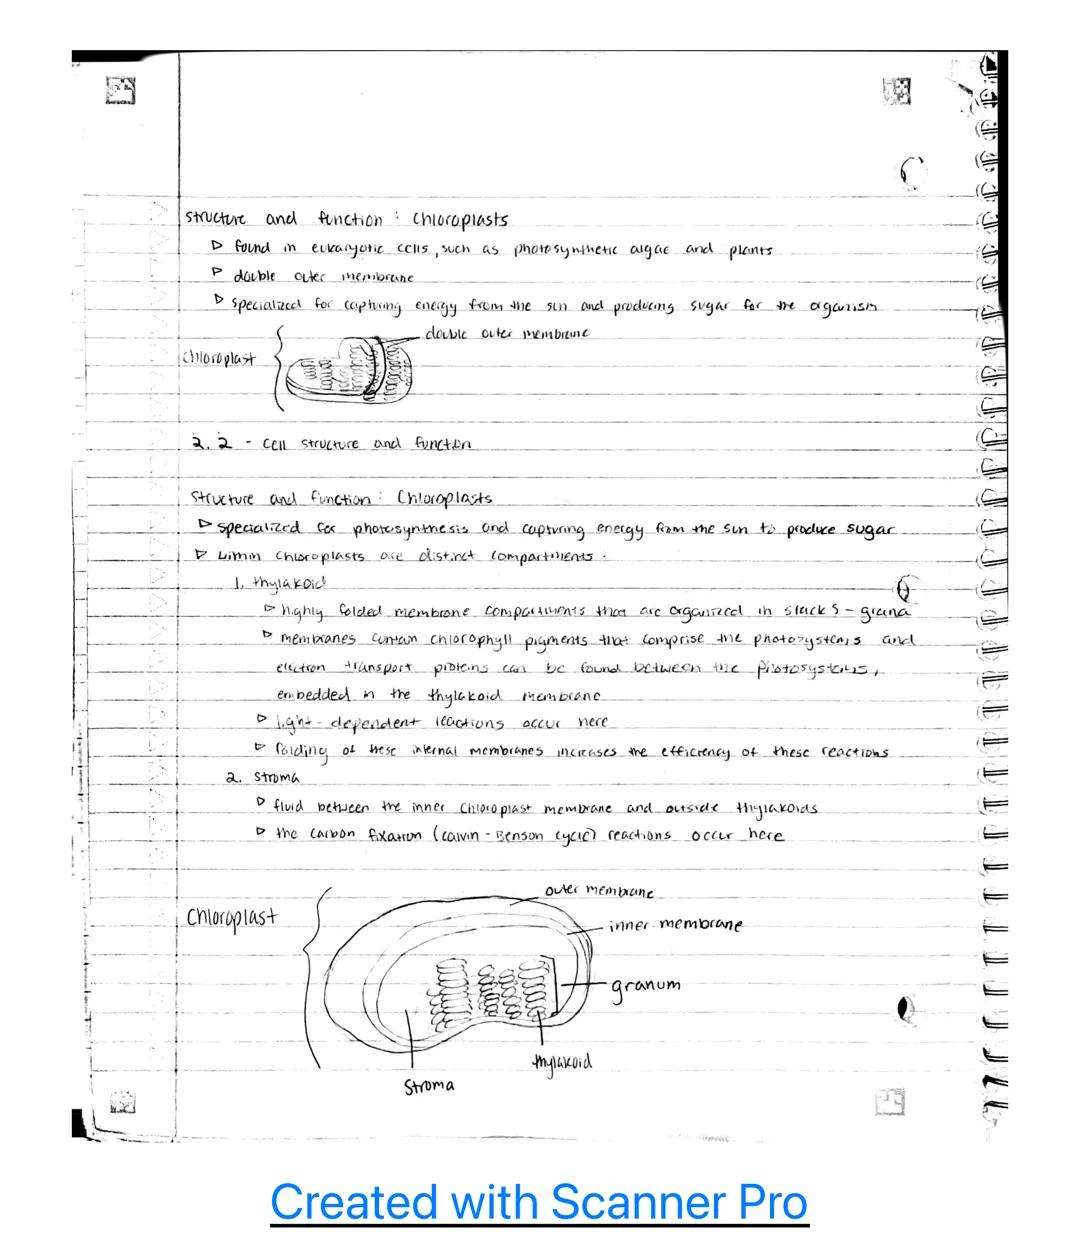 structure and function : Chloroplasts
▷ found in eukaryotic cells, such as photosynthetic algae and plants
▷ double outer membrane
▷ specialized for capturing energy from the sun and producing sugar for the organism
double outer membrane
Chloroplast
2.2 - cell structure and function
Structure and function : Chloroplasts
▷ specialized for photosynthesis and capturing energy from the sun to produce sugar
▷ within chloroplasts are distinct compartments :
1. thylakoid
▷ highly folded membrane compartments that are organized in stacks - grana
▷ membranes contain chlorophyll pigments that comprise the photosystems and
electron transport proteins can be found between the photosystems,
embedded in the thylakoid membrane
▷ light-dependent reactions occur here
▷ folding of these internal membranes increases the efficiency of these reactions
2. stroma
▷ fluid between the inner chloroplast membrane and outside thylakoids
▷ the carbon fixation (calvin-Benson cycle) reactions occur here
outer membrane
Chloroplast
inner membrane
granum
thylakoid
Stroma
Created with Scanner Pro